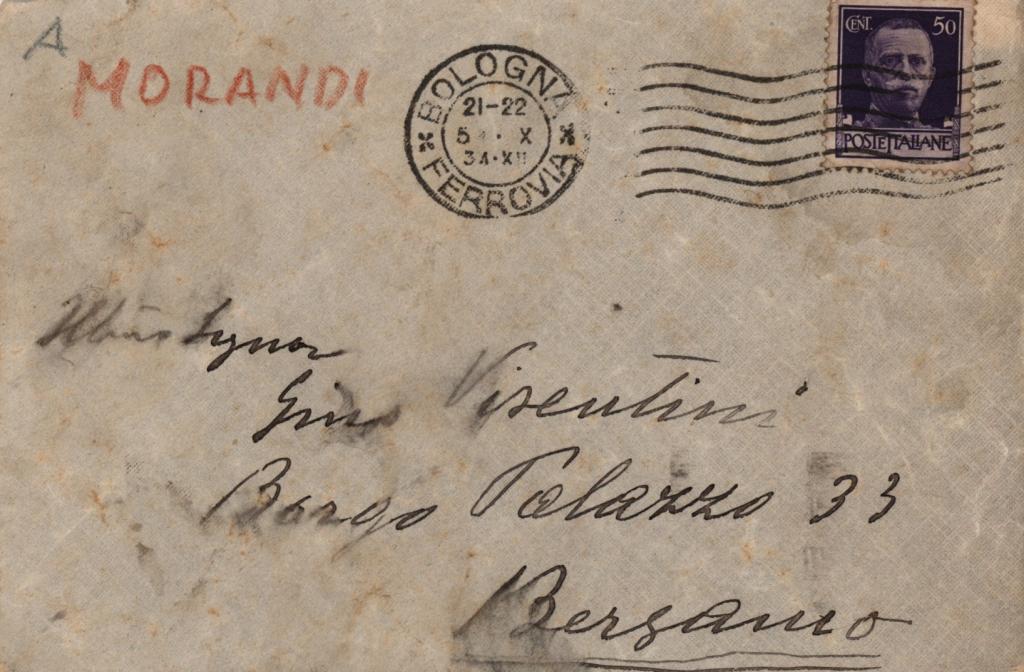 A
MORANDI
BOLOGNA
21-22
5 X
34·XII
FERROVIA
CENT. 50
POSTE ITALIANE
Signor
Gino Visentini
Borgo Palazzo 33
Bergamo